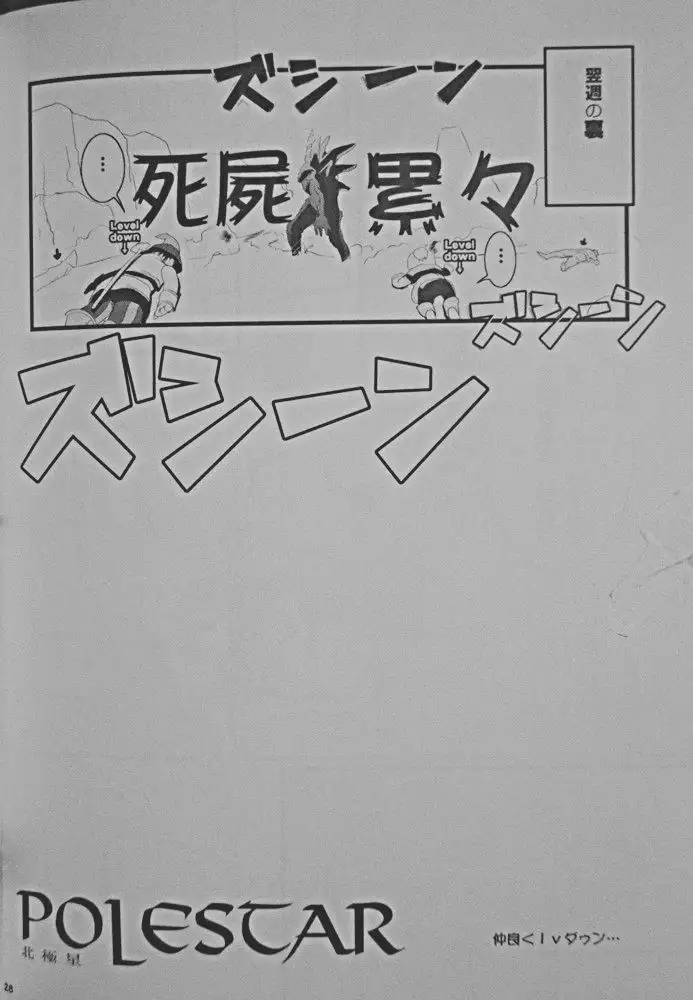 翌週の裏
ズシーン
死屍累々
…
Level
down
Level
down
…
ズシーン
ズシーン
POLESTAR
北極星
仲良くlvダゥン…
28